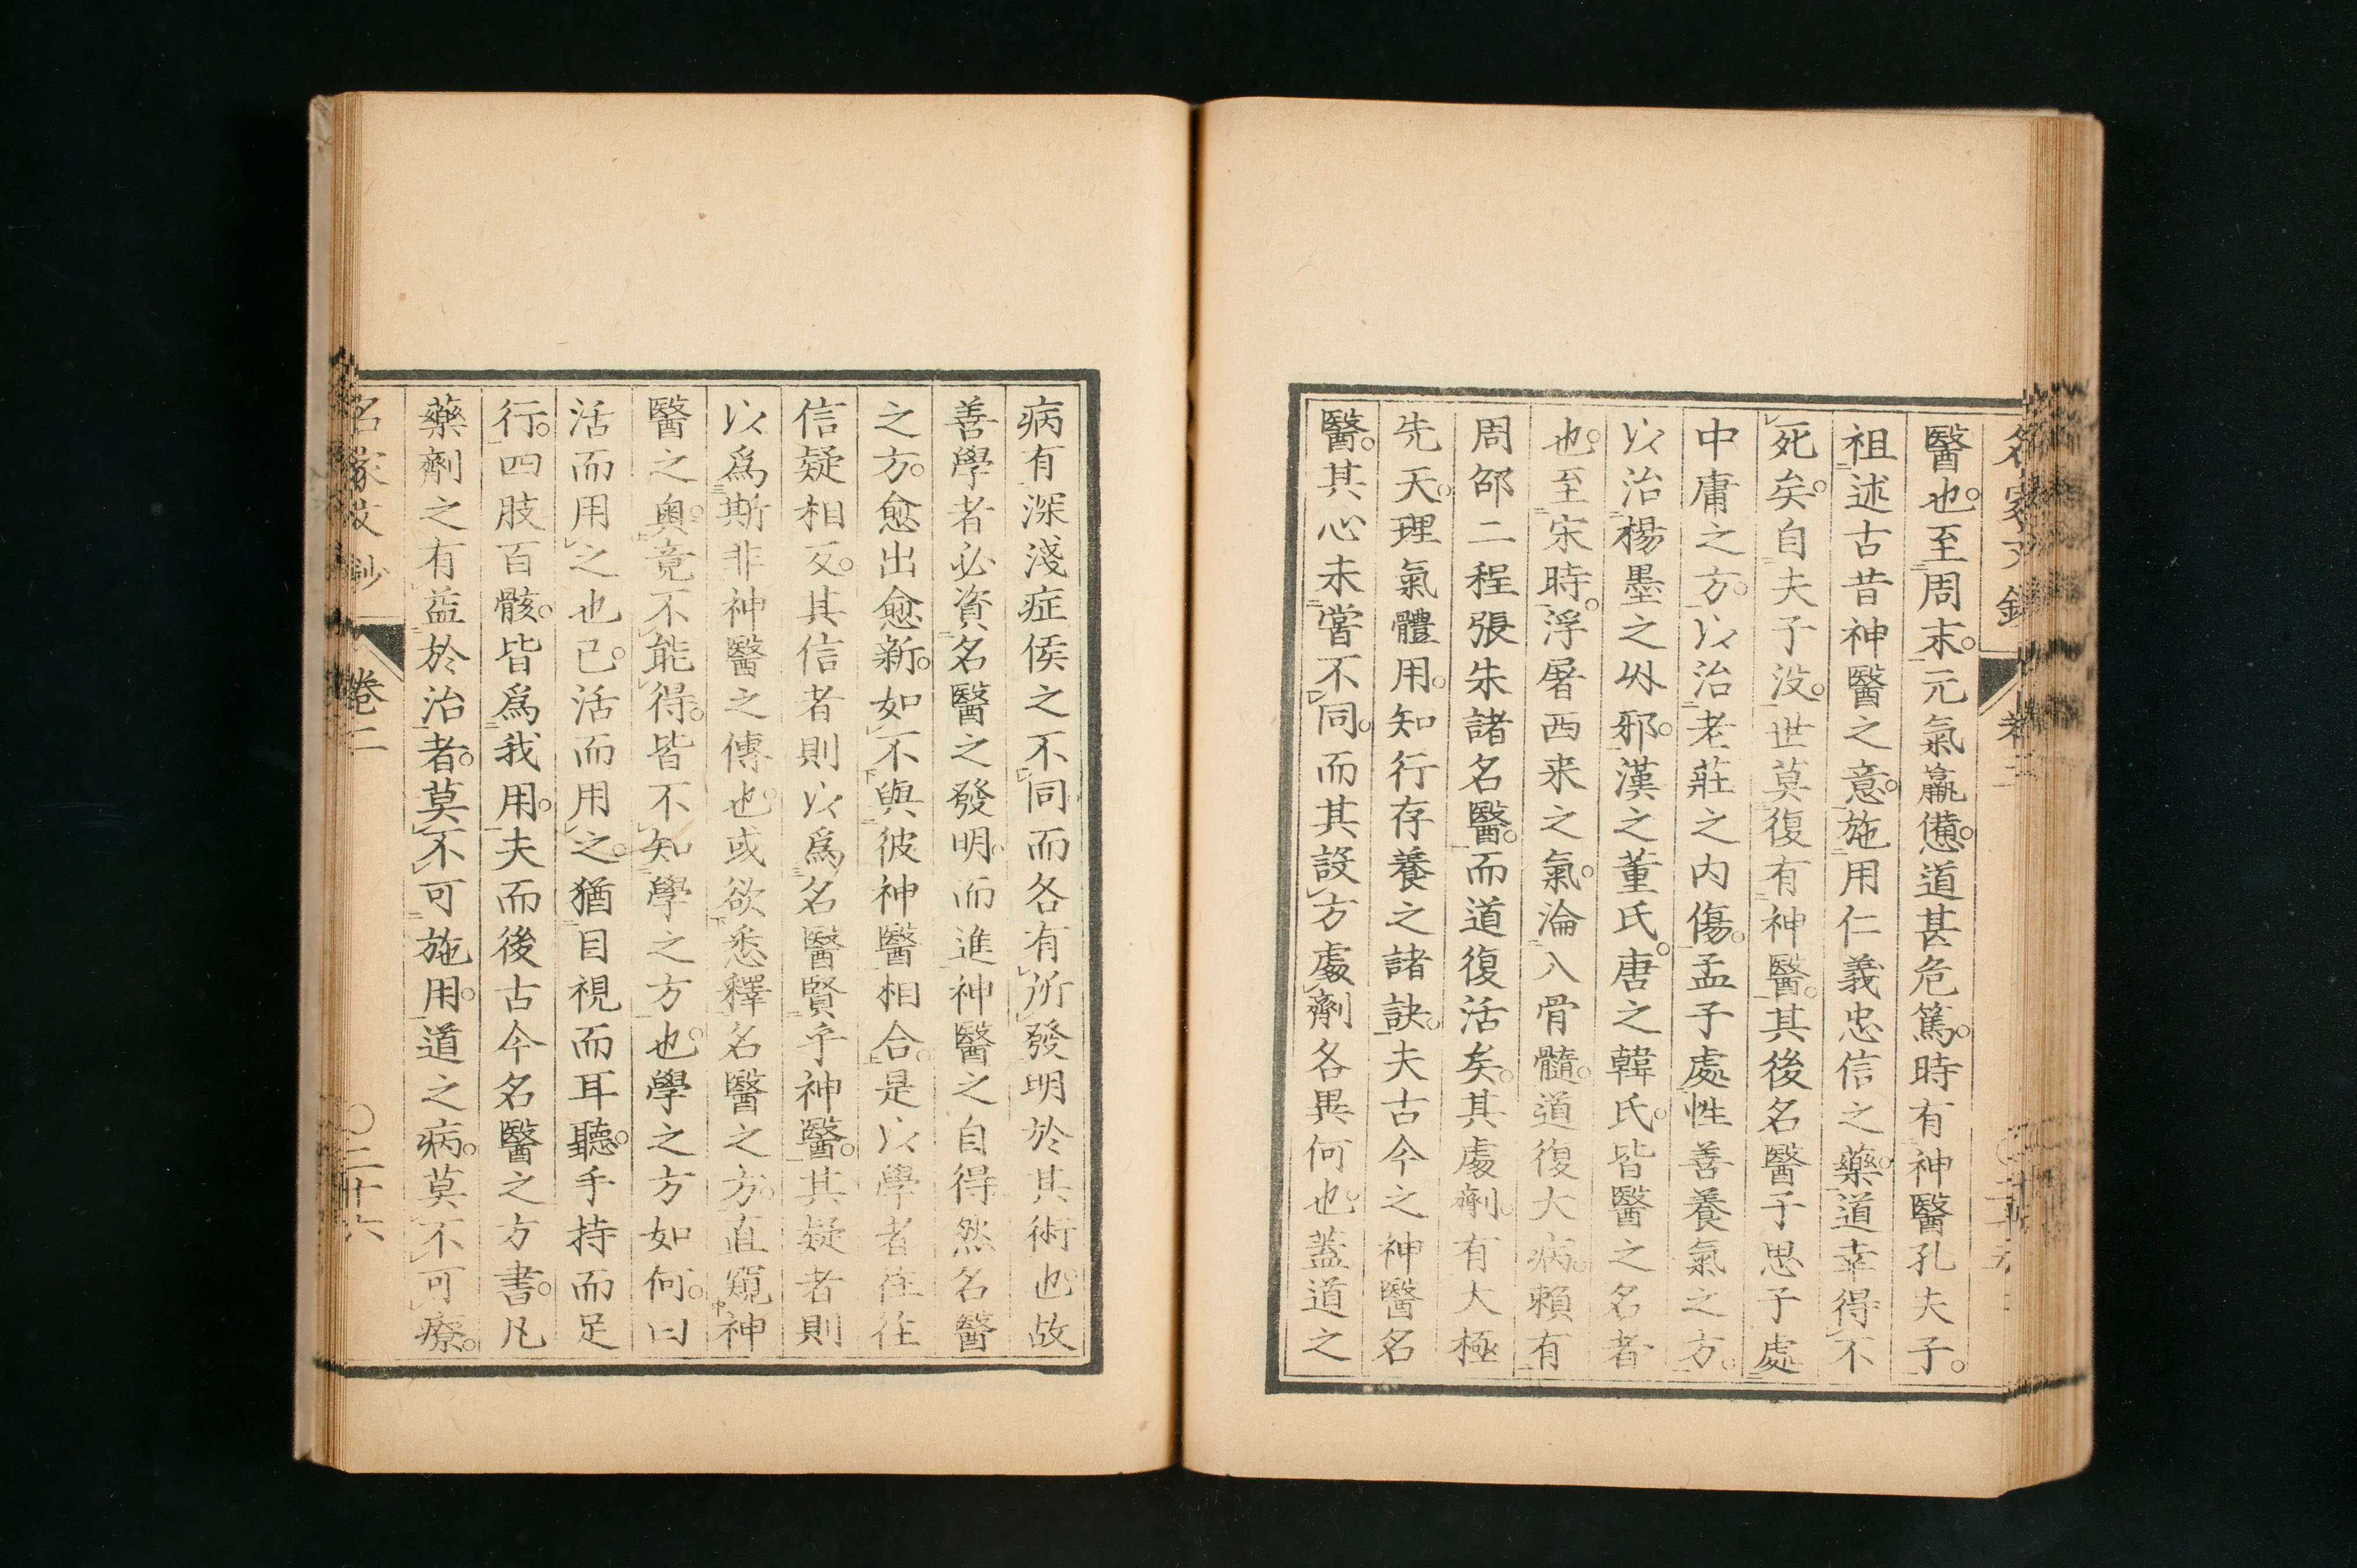 醫也。至周末。元氣羸憊。道甚危篤。時有神醫孔夫子。
祖述古昔神醫之意。施用仁義忠信之藥。道幸得不
死矣。自夫子没。世莫復有神醫。其後名醫子思子處
中庸之方。以治老莊之内傷。孟子處性善養氣之方。
以治楊墨之外邪。漢之董氏。唐之韓氏。皆醫之名者
也。至宋時。浮屠西来之氣。淪入骨髓。道復大病。賴有
周邵二程張朱諸名醫。而道復活矣。其處劑。有大極
先天。理氣體用。知行存養之諸訣。夫古今之神醫名
醫。其心未嘗不同。而其設方處劑各異何也。蓋道之
病有深淺症侯之不同而各有所發明於其術也。故
善學者必資名醫之發明。而進神醫之自得。然名醫
之方。愈出愈新。如不與彼神醫相合。是以學者往往
信疑相反。其信者則以爲名醫賢乎神醫。其疑者則
以爲斯非神醫之傳也。或欲悉釋名醫之方。直窺神
醫之奥。竟不能得。皆不知學之方也。學之方如何。曰
活而用之也已。活而用之。猶目視而耳聽。手持而足
行。四肢百骸。皆爲我用。夫而後古今名醫之方書。凡
藥劑之有益於治者。莫不可施用。道之病。莫不可療。
名家文鈔
卷二
〇二十六